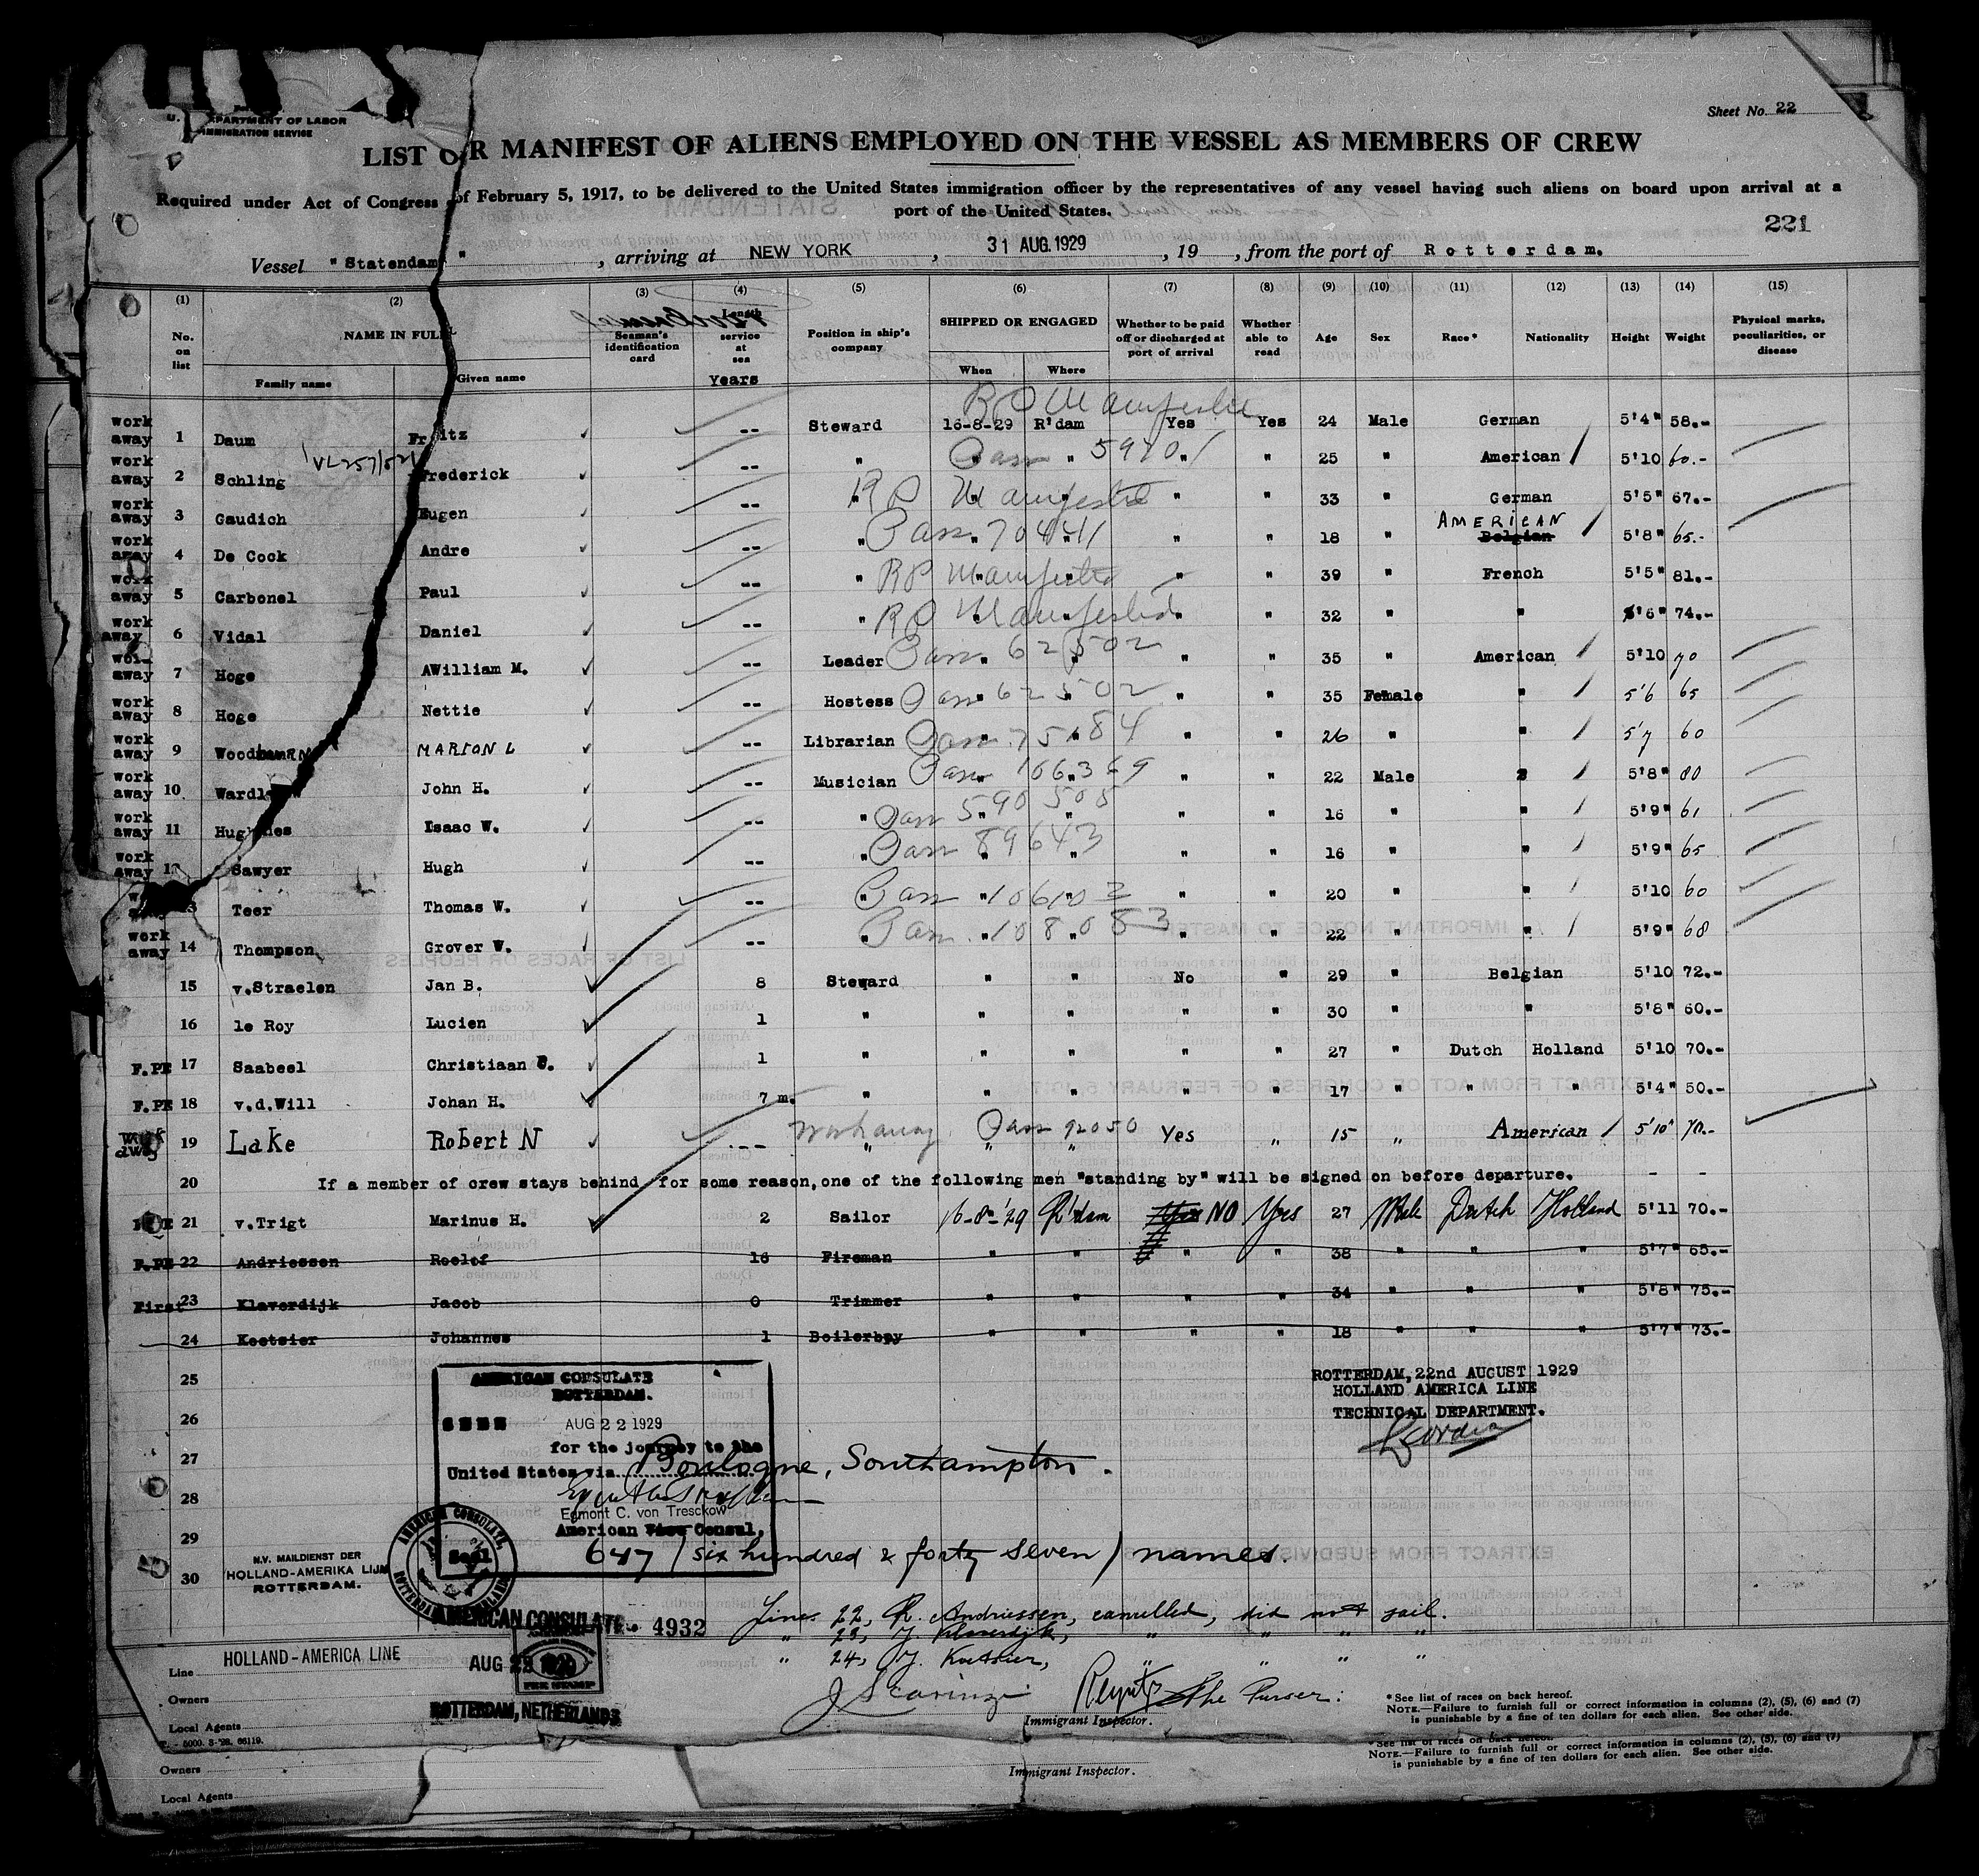 Sheet No. 22
U. S. DEPARTMENT OF LABOR
IMMIGRATION SERVICE
LIST OR MANIFEST OF ALIENS EMPLOYED ON THE VESSEL AS MEMBERS OF CREW
Required under Act of Congress of February 5, 1917, to be delivered to the United States immigration officer by the representatives of any vessel having such aliens on board upon arrival at a
port of the United States.
221
Vessel "Statendam", arriving at NEW YORK, 31 AUG. 1929, 19 , from the port of Rotterdam.
(1) (2) (3) (4) (5) (6) (7) (8) (9) (10) (11) (12) (13) (14) (15)
No. on list NAME IN FULL Family name Given name Seaman's identification card Length service at sea Years Position in ship's company SHIPPED OR ENGAGED When Where Whether to be paid off or discharged at port of arrival Whether able to read Age Sex Race* Nationality Height Weight Physical marks, peculiarities, or disease
RP Manifested
work away 1 Daum Fritz -- Steward 16-8-29 R'dam Yes Yes 24 Male German 5'4" 58.-
work away 2 Schling Frederick -- " Pass " 59201 " " 25 " American 5'10 60.-
work away 3 Gaudich Eugen -- " RP Manifested " " 33 " German 5'5" 67.-
work away 4 De Cook Andre -- " Pass 70441 " " 18 " AMERICAN Belgian 5'8" 65.-
work away 5 Carbonel Paul -- " RP Manifested " " 39 " French 5'5" 81.-
work away 6 Vidal Daniel -- " RP Manifested " " 32 " " 5'6" 74.-
work away 7 Hoge AWilliam M. -- Leader Pass 62502 " " 35 " American 5'10 70
work away 8 Hoge Nettie -- Hostess Pass 62502 " " 35 Female " 5'6 65
work away 9 WoodburRN MARION L -- Librarian Pass 75184 " " 26 " " 5'7 60
work away 10 Wardlaw John H. -- Musician Pass 106369 " " 22 Male " 5'8" 80
work away 11 Hughes Isaac W. -- " Pass 590505 " " 16 " " 5'9" 61
work away 12 Sawyer Hugh -- " Pass 89643 " " 16 " " 5'9" 65
13 Teer Thomas W. -- " Pass 106103 " " 20 " " 5'10 60
work away 14 Thompson Grover W. -- " Pass 108083 " " 22 " " 5'9" 68
15 v.Straelen Jan B. 8 Steward " " No " 29 " Belgian 5'10 72.-
16 le Roy Lucien 1 " " " " " 30 " " 5'8" 60.-
F.PE 17 Saabeel Christiaan C. 1 " " " " " 27 " Dutch Holland 5'10 70.-
F.PE 18 v.d.Will Johan H. 7 m. " " " " " 17 " " " 5'4" 50.-
work away 19 Lake Robert N -- workaway " Pass 92050 Yes " 15 " American 5'10" 70.-
20 If a member of crew stays behind for some reason, one of the following men "standing by" will be signed on before departure. - -
21 v.Trigt Marinus H. 2 Sailor 16-8-'29 R'dam Yes NO Yes 27 Male Dutch Holland 5'11 70.-
F.PE 22 Andriessen Roelof 16 Fireman " " " " 38 " " " 5'7" 65.-
First 23 Klaverdijk Jacob 0 Trimmer " " " " 34 " " " 5'8" 75.-
24 Koetsier Johannes 1 Boilerboy " " " " 18 " " " 5'7" 73.-
25
26
27
28
29
30
ROTTERDAM, 22nd AUGUST 1929
HOLLAND AMERICA LINE
TECHNICAL DEPARTMENT.
AMERICAN CONSULATE
ROTTERDAM.
SEEN AUG 22 1929
for the journey to the
United States via Boulogne, Southampton.
Egmont C. von Tresckow
American Vice Consul.
647 (six hundred & forty seven) names.
AMERICAN CONSULATE, ROTTERDAM Seal
N.V. MAILDIENST DER
HOLLAND-AMERIKA LIJN
ROTTERDAM.
AMERICAN CONSULATE 4932
AUG 22 1929
FEE STAMP
ROTTERDAM, NETHERLANDS
Lines 22, R. Andriessen, cancelled, did not sail.
" 23, J. Klaverdijk, " " " "
" 24, J. Koetsier, " " " "
The Purser:
Immigrant Inspector.
Line HOLLAND-AMERICA LINE
Owners
Local Agents
P. - 5000. 3-'28. 66119.
*See list of races on back hereof.
NOTE.—Failure to furnish full or correct information in columns (2), (5), (6) and (7)
is punishable by a fine of ten dollars for each alien. See other side.
*See list of races on back hereof.
NOTE.—Failure to furnish full or correct information in columns (2), (5), (6) and (7)
is punishable by a fine of ten dollars for each alien. See other side.
Owners
Immigrant Inspector.
Local Agents